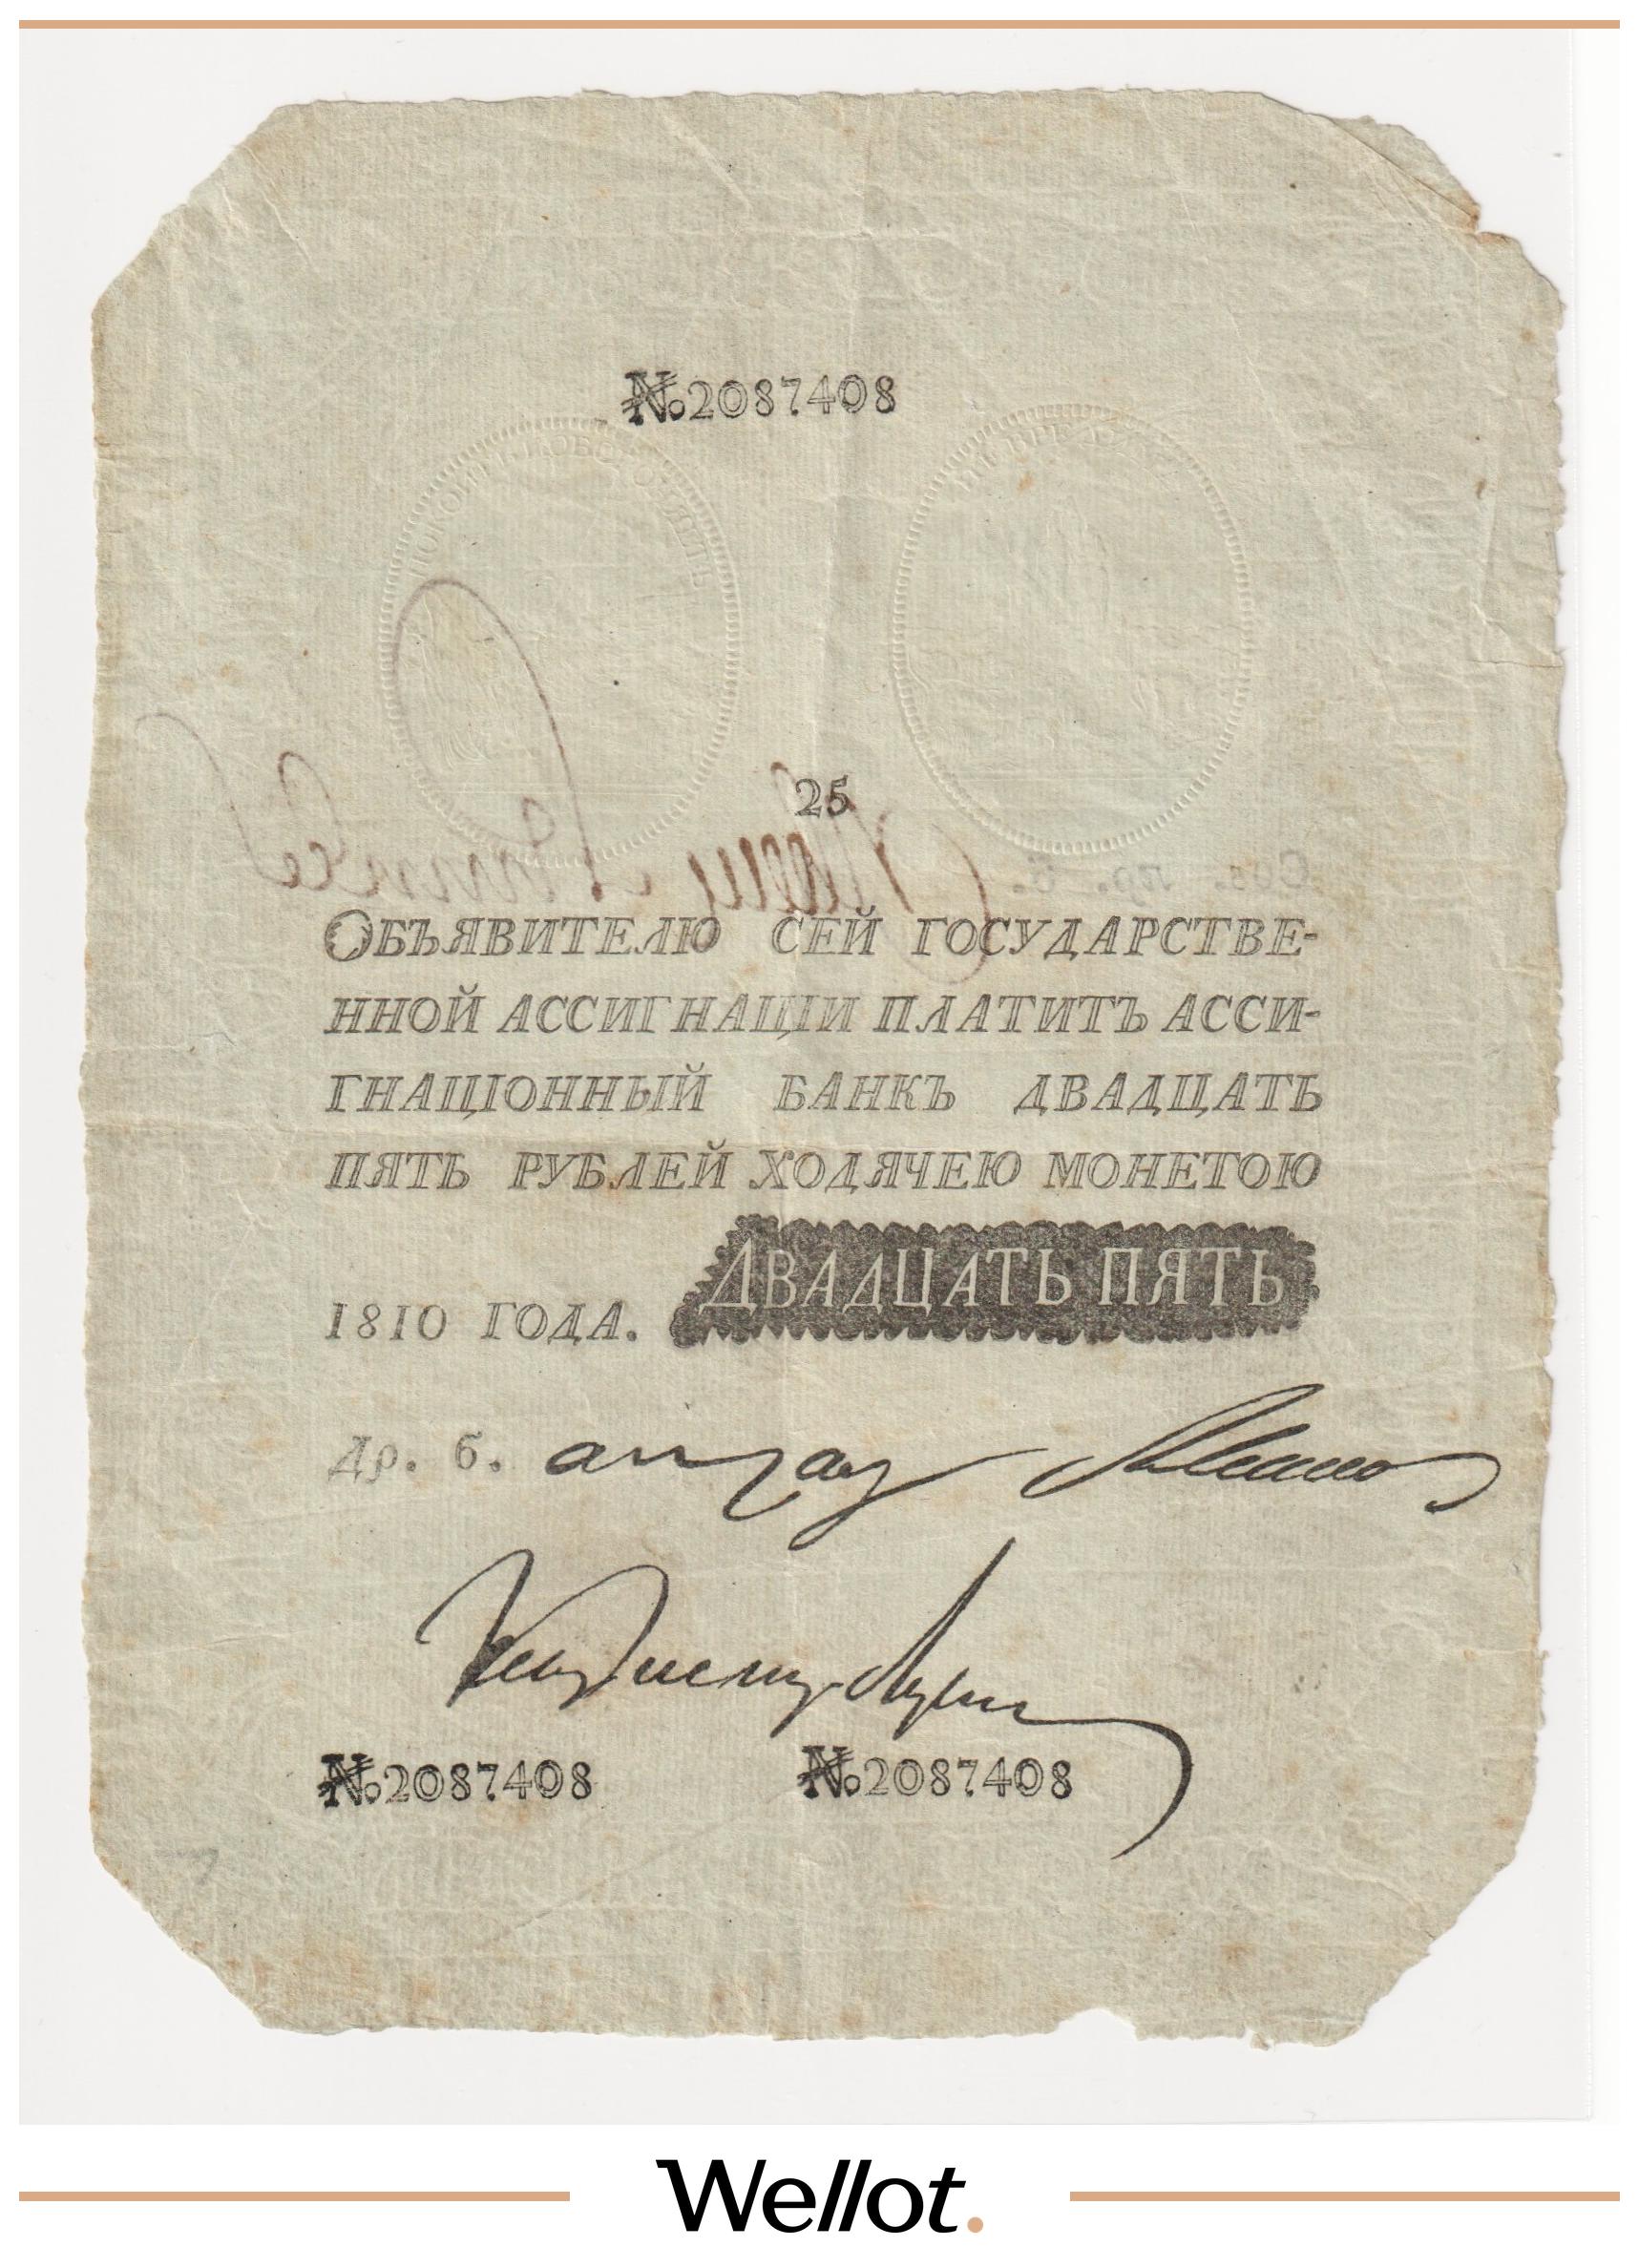 №.2087408
ПОКОИТЪ И ОБОРОНЯЕТЪ
НЕ ВРЕДИМА
25
ОБЪЯВИТЕЛЮ СЕЙ ГОСУДАРСТВЕ-
ННОЙ АССИГНАЦІИ ПЛАТИТЪ АССИ-
ГНАЦІОННЫЙ БАНКЪ ДВАДЦАТЬ
ПЯТЬ РУБЛЕЙ ХОДЯЧЕЮ МОНЕТОЮ
1810 ГОДА. ДВАДЦАТЬ ПЯТЬ
др. б.
№.2087408 №.2087408
Wellot.